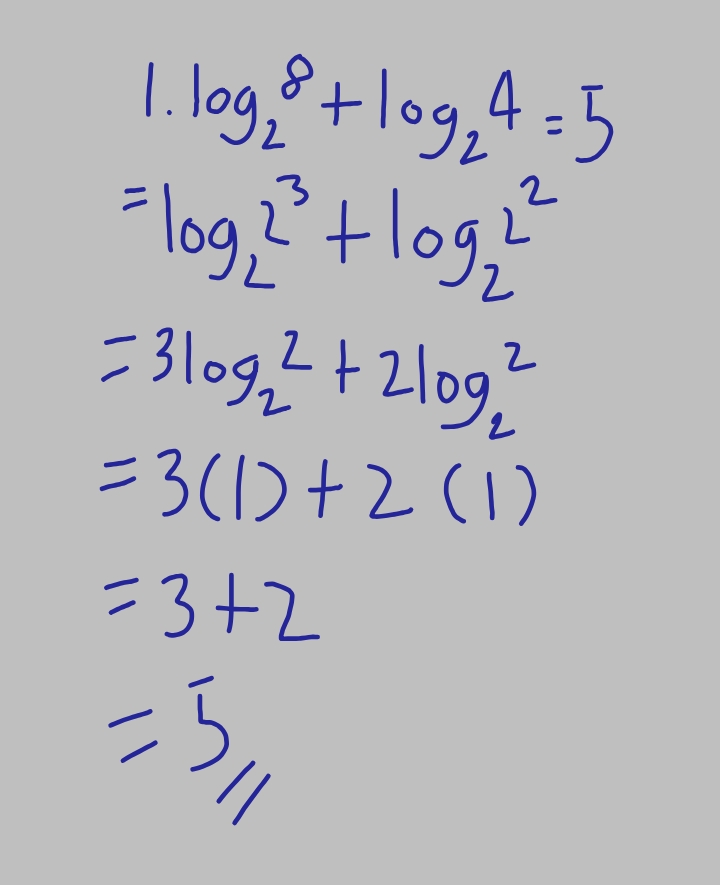 1. log₂8 + log₂4 = 5
= log₂2³ + log₂2²
= 3log₂2 + 2log₂2
= 3(1) + 2(1)
= 3 + 2
= 5//